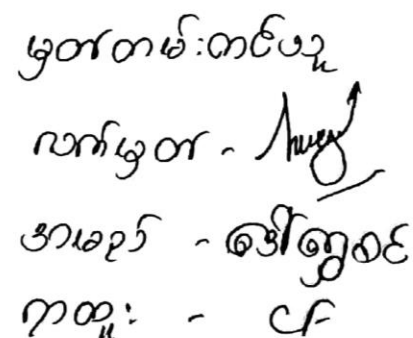 မှတ်တမ်းတင်ပသူ
လက်မှတ် -
အမည် - ဒေါ်ရွှေစင်
ရာထူး -